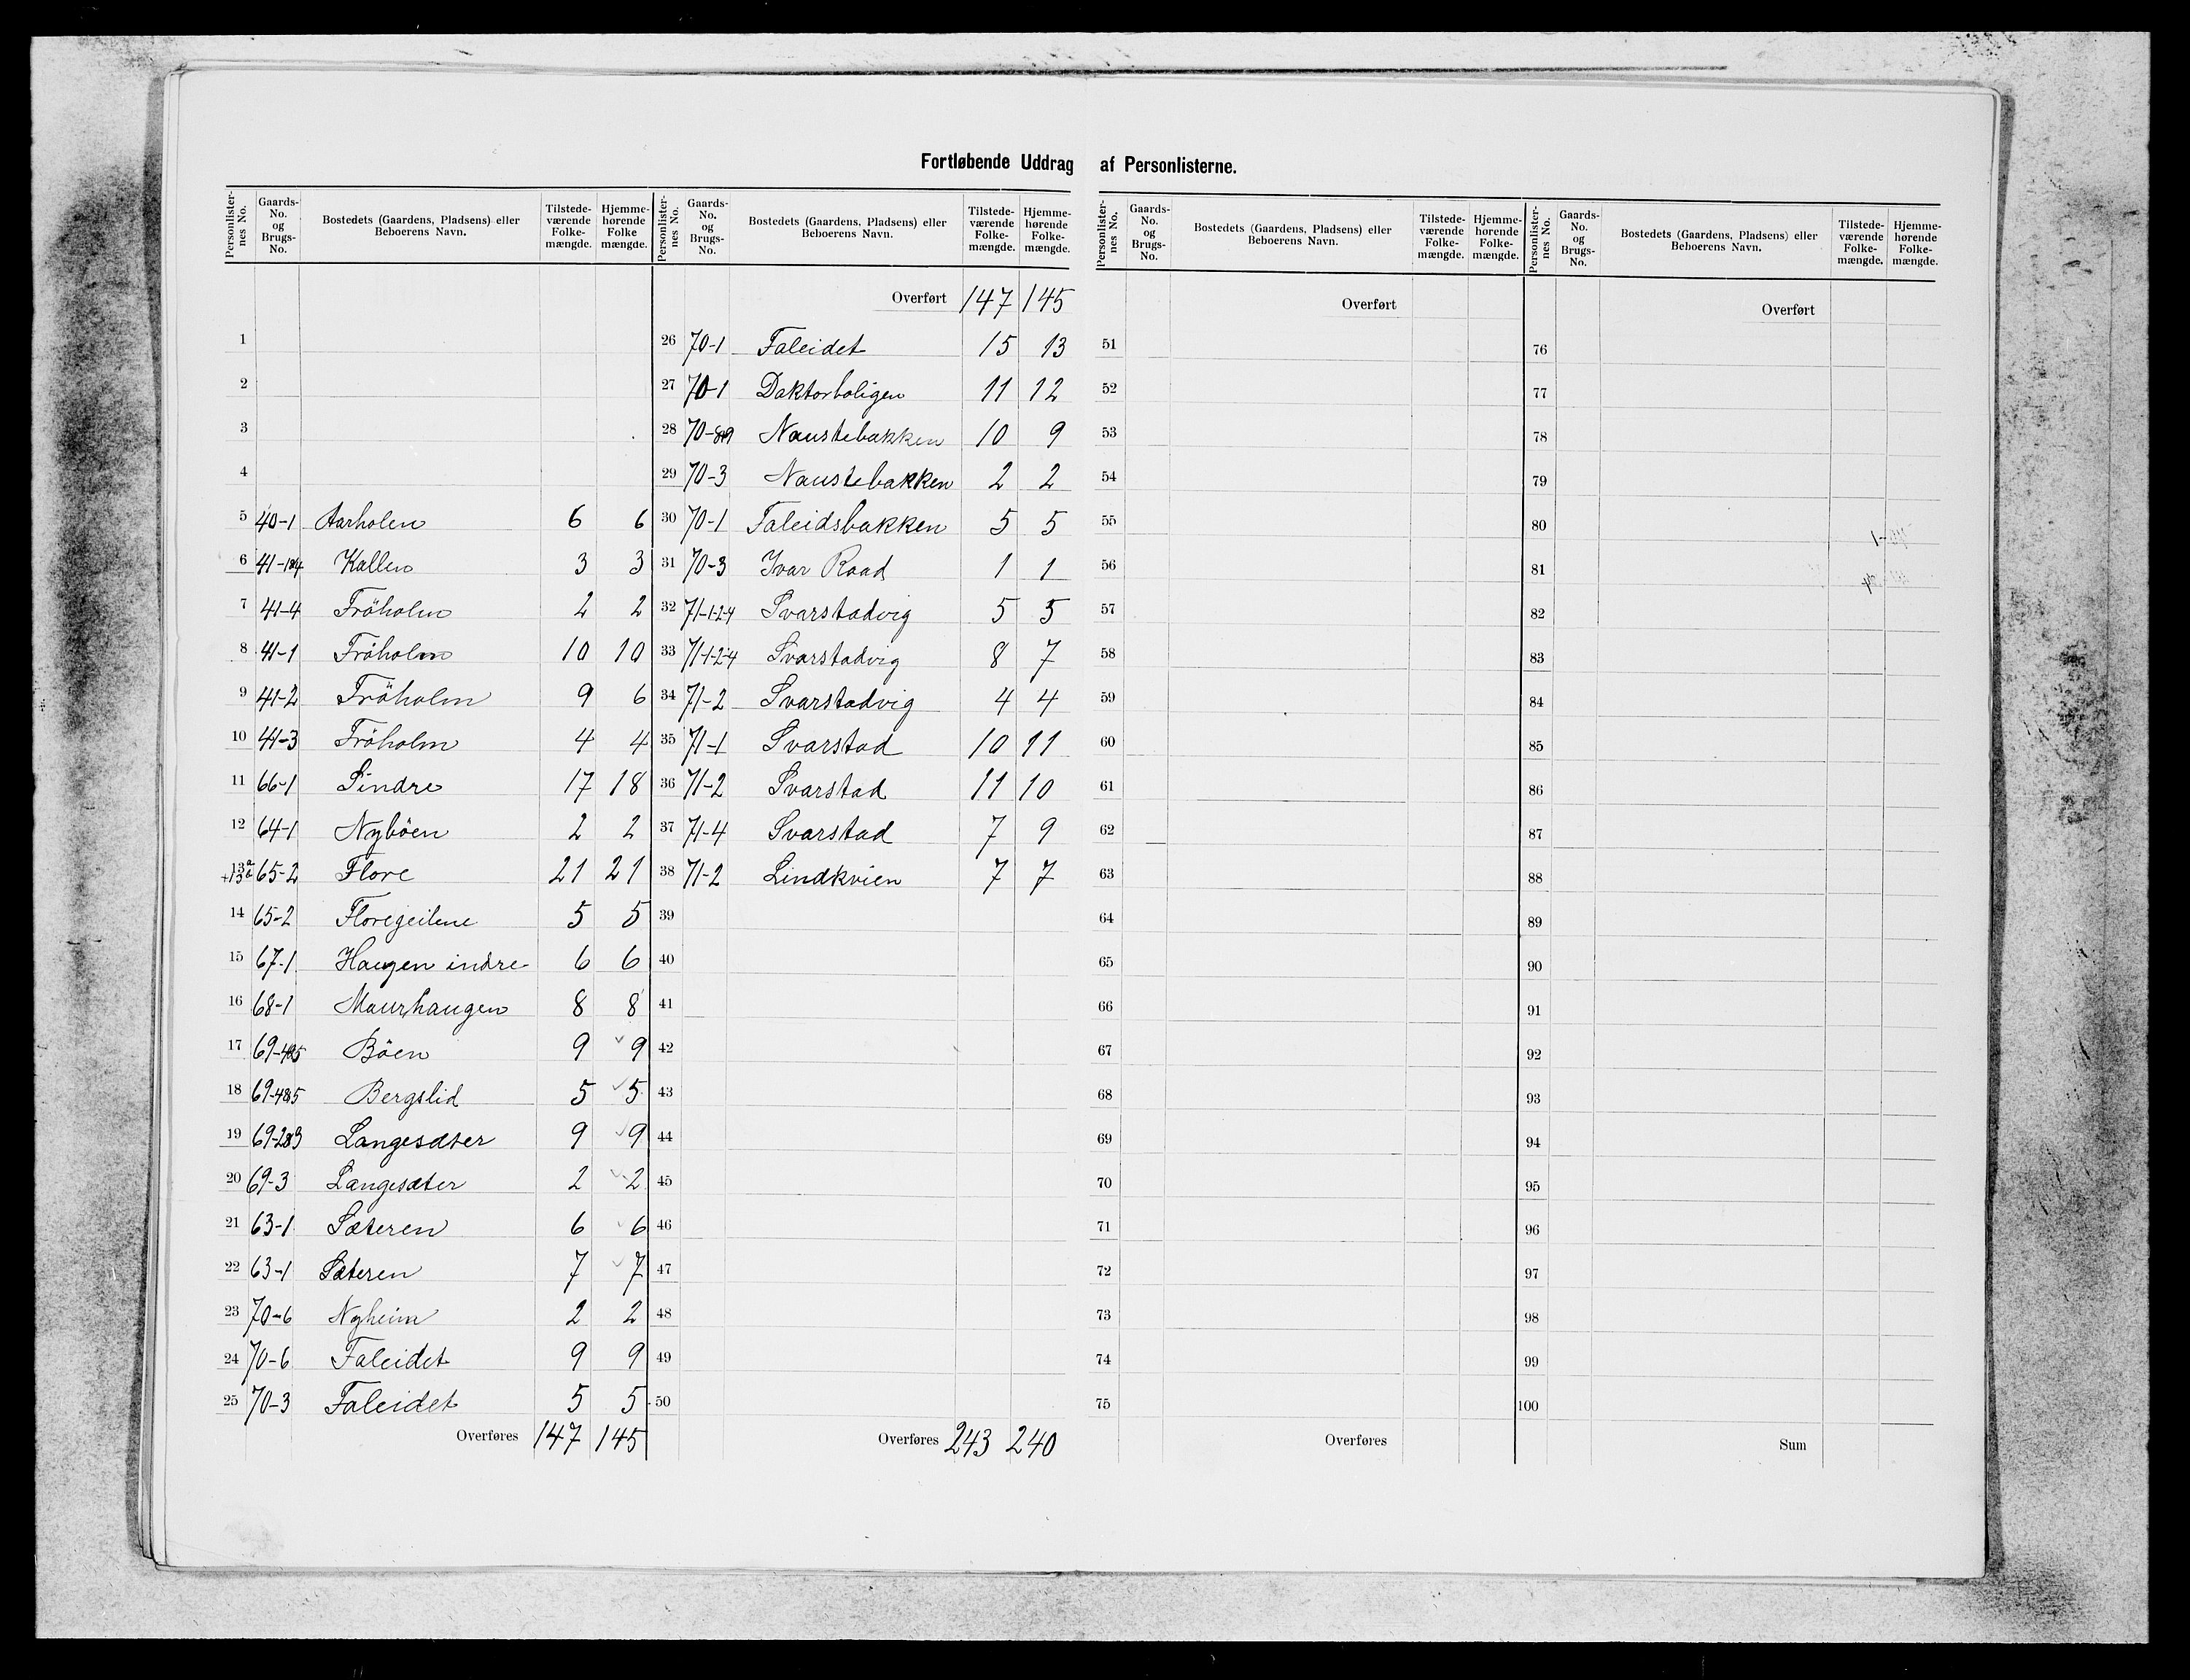 Fortløbende Uddrag af Personlisterne.
Personlister-nes No. | Gaards-No. og Brugs-No. | Bostedets (Gaardens, Pladsens) eller Beboerens Navn. | Tilstede-værende Folke-mængde. | Hjemme-hørende Folke mængde.
1
2
3
4
5 40-1 Aarholen 6 6
6 41-1&4 Kallen 3 3
7 41-4 Fröholm 2 2
8 41-1 Fröholm 10 10
9 41-2 Fröholm 9 6
10 41-3 Fröholm 4 4
11 66-1 Sindre 17 18
12 64-1 Nyböen 2 2
13a +13b 65-2 Flore 21 21
14 65-2 Floregeilene 5 5
15 67-1 Haugen indre 6 6
16 68-1 Maurhaugen 8 8
17 69-4&5 Böen 9 9
18 69-4&5 Bergslid 5 5
19 69-2&3 Langesæter 9 9
20 69-3 Langesæter 2 2
21 63-1 Sæteren 6 6
22 63-1 Sæteren 7 7
23 70-6 Nyheim 2 2
24 70-6 Faleidet 9 9
25 70-3 Faleidet 5 5
Overføres 147 145
Personlister-nes No. | Gaards-No. og Brugs-No. | Bostedets (Gaardens, Pladsens) eller Beboerens Navn. | Tilstede-værende Folke-mængde. | Hjemme-hørende Folke-mængde.
Overført 147 145
26 70-1 Faleidet 15 13
27 70-1 Doktorboligen 11 12
28 70-8&9 Naustebakken 10 9
29 70-3 Naustebakken 2 2
30 70-1 Faleidsbakken 5 5
31 70-3 Ivar Raad 1 1
32 71-1-2-4 Svarstadvig 5 5
33 71-1-2-4 Svarstadvig 8 7
34 71-2 Svarstadvig 4 4
35 71-1 Svarstad 10 11
36 71-2 Svarstad 11 10
37 71-4 Svarstad 7 9
38 71-2 Lindkvien 7 7
39
40
41
42
43
44
45
46
47
48
49
50
Overføres 243 240
Personlister-nes No. | Gaards-No. og Brugs-No. | Bostedets (Gaardens, Pladsens) eller Beboerens Navn. | Tilstede-værende Folke-mængde. | Hjemme-hørende Folke-mængde.
Overført
51
52
53
54
55
56
57
58
59
60
61
62
63
64
65
66
67
68
69
70
71
72
73
74
75
Overføres
Personlister-nes No. | Gaards-No. og Brugs-No. | Bostedets (Gaardens, Pladsens) eller Beboerens Navn. | Tilstede-værende Folke-mængde. | Hjemme-hørende Folke-mængde.
Overført
76
77
78
79
80
81
82
83
84
85
86
87
88
89
90
91
92
93
94
95
96
97
98
99
100
Sum